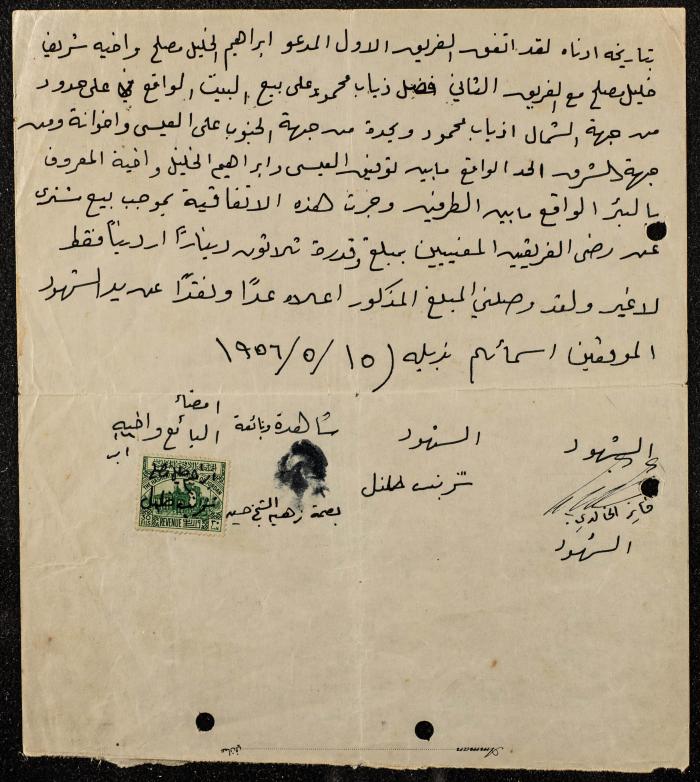 بتاريخه ادناه لقد اتفق الفريق الاول المدعو ابراهيم الخليل مصلح واخيه شريف
خليل مصلح مع الفريق الثاني فضل ذياب محمود على بيع البيت الواقع على حدود
من جهة الشمال اذياب محمود ويحده من جهة الجنوب علي العيسى واخوانة ومن
جهة الشرق الحد الواقع مابين توفيق العيسى وابراهيم الخليل واخية المعروف
بالبئر الواقع مابين الطرفين وجرت هذه الاتفاقية بموجب بيع
عن رضى الفريقين المعنيين بمبلغ وقدرة ثلاثون دينارًا اردنيًا فقط
لاغير ولقد وصلني المبلغ المذكور اعلاه عدًا ونقدًا عن يد الشهود
الموقعين اسمائهم بذيله (١٥ / ٥ / ١٩٥٦
الشهود
فايز الخالدي
الشهود
الشهود
شاهدة وبائعة
بصمة زهيه الشيخ حسين
امضاء
البائع واخيه
REVENUE
Amman
عمان